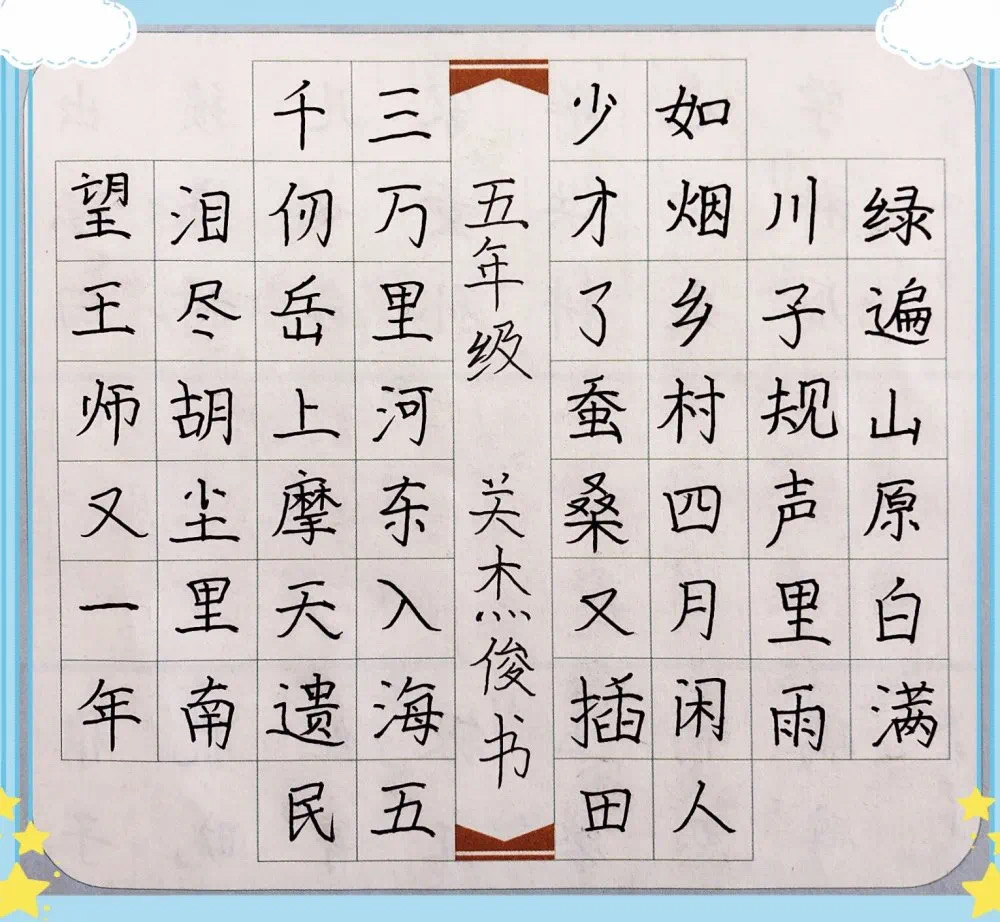 绿遍山原白满
川子规声里雨
如烟乡村四月闲人
少才了蚕桑又插田
五年级 关杰俊书
三万里河东入海五
千仞岳上摩天遗民
泪尽胡尘里南
望王师又一年